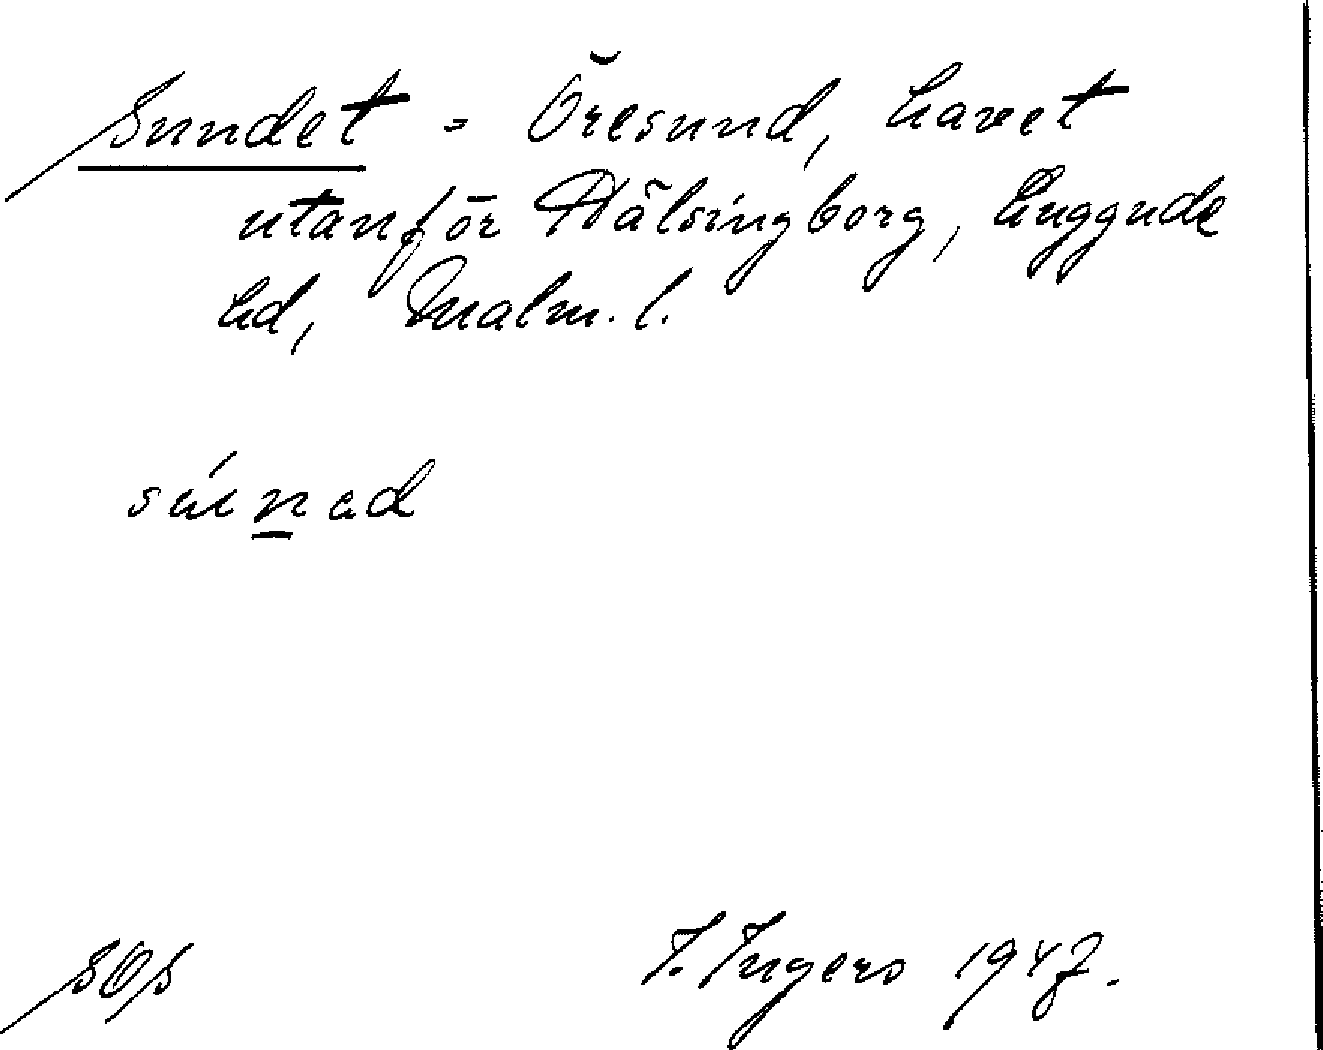 Sundet = Öresund, havet
utanför Hälsingborg, Luggude
hd, Malm. l.
súnad
SOS
I. Ingers 1947.